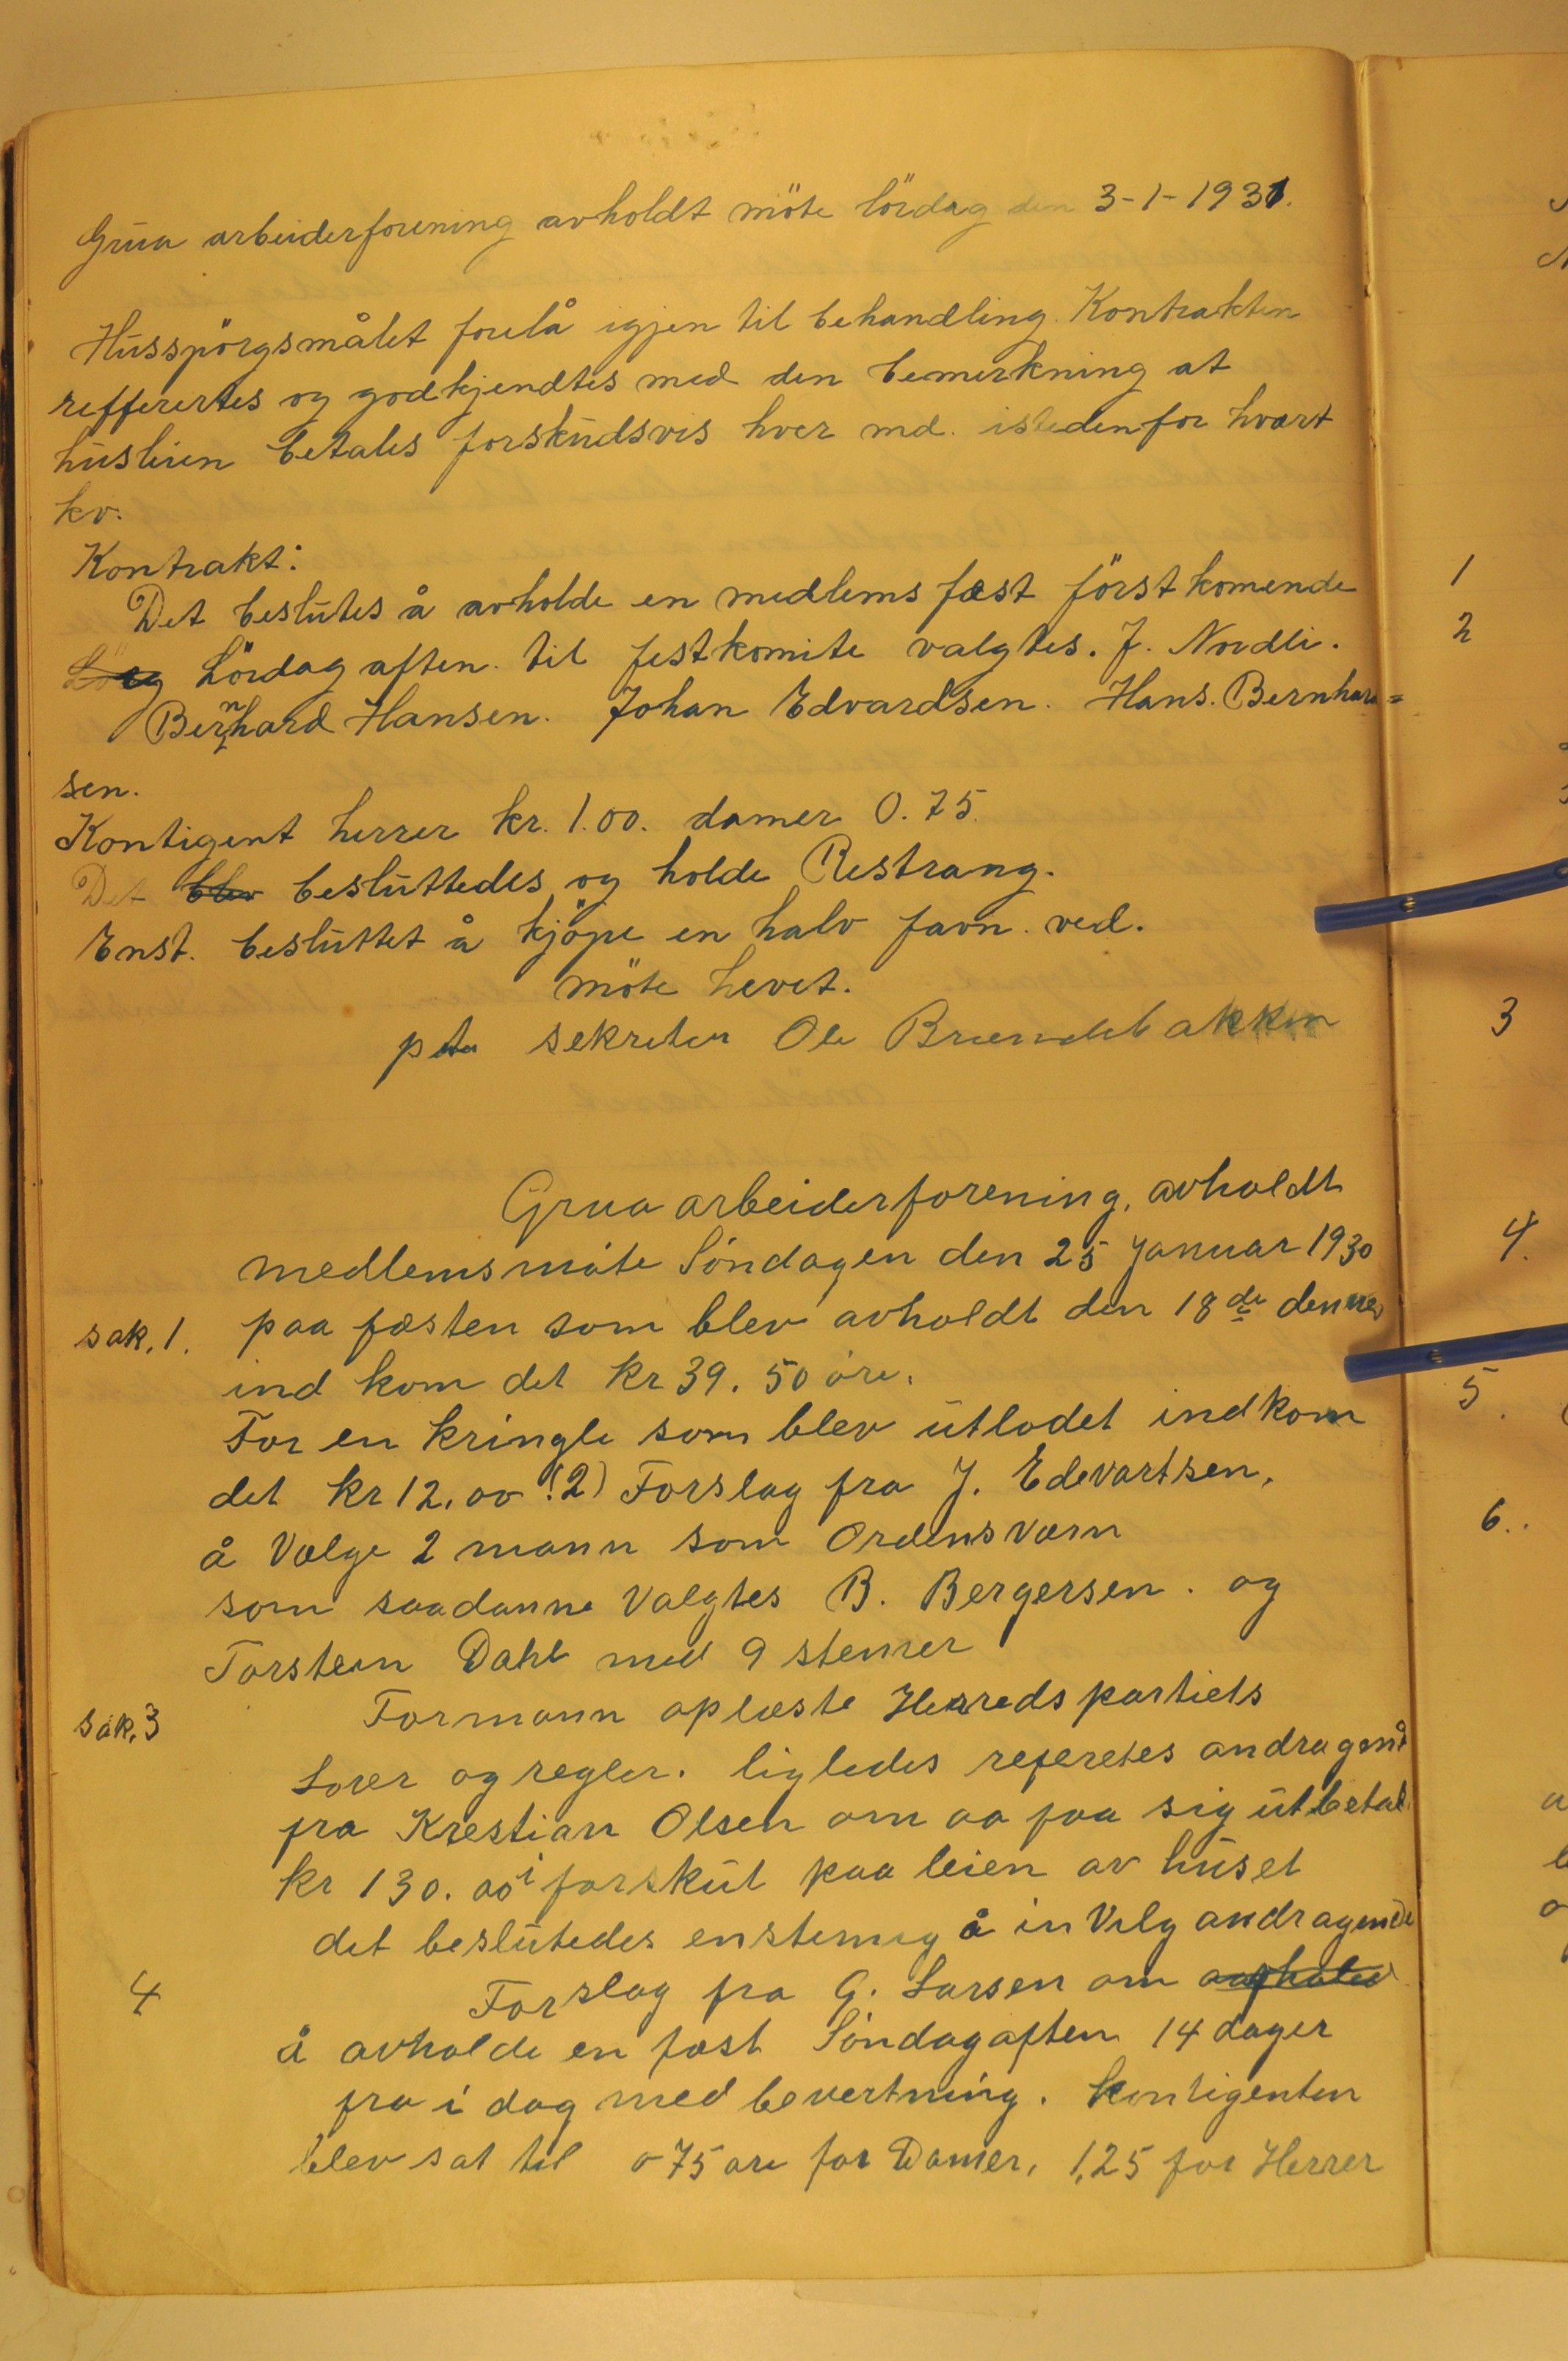 Grua arbeiderforening avholdt möte lördag den 3-1-1931.
Husspörgsmålet forelå igjen til behandling. Kontrakten
refferertes og godkjendtes med den bemerkning at
husleien betales forskudsvis hver md. istedenfor hvert
kv.
Kontrakt:
Det beslutes å avholde en medlems fæst först komende
Lördag aften. til festkomite valgtes. J. Nordli.
Bernhard Hansen. Johan Edvardsen. Hans. Bernhard=
sen.
Kontigent herrer kr. 1.00. damer 0.75.
Det blev besluttedes og holde Restrang.
Enst. besluttet å kjöpe en halv favn ved.
möte hevet.
sekreter Ole Brændebakken
Grua arbeiderforening, avholdt
medlemsmöte Söndagen den 25 Januar 1930
sak. 1. paa fæsten som blev avholdt den 18de dennes
ind kom det kr 39.50 öre.
For en kringle som blev utlodet indkom
det kr 12.00 (2) Forslag fra J. Edevartsen,
å Vælge 2 mann som Ordensværn
som saadanne Valgtes B. Bergersen. og
Torstein Dahl med 9 stemer
sak. 3 Formann oplæste Herredspartiets
Lover og regler. ligledes referetes andragend
fra Krestian Olsen om aa faa sig utbetal
kr 130.00 i forskut paa leien av huset
det beslutedes enstemig å inVilg andragende
4 Forslag fra G. Larsen om
å avholde en fæst Söndagaften 14 dager
fra i dag med bevertning. Kontigenten
blev sat til 0 75 öre for Damer, 1,25 for Herrer
1
2
3
4.
5.
6..